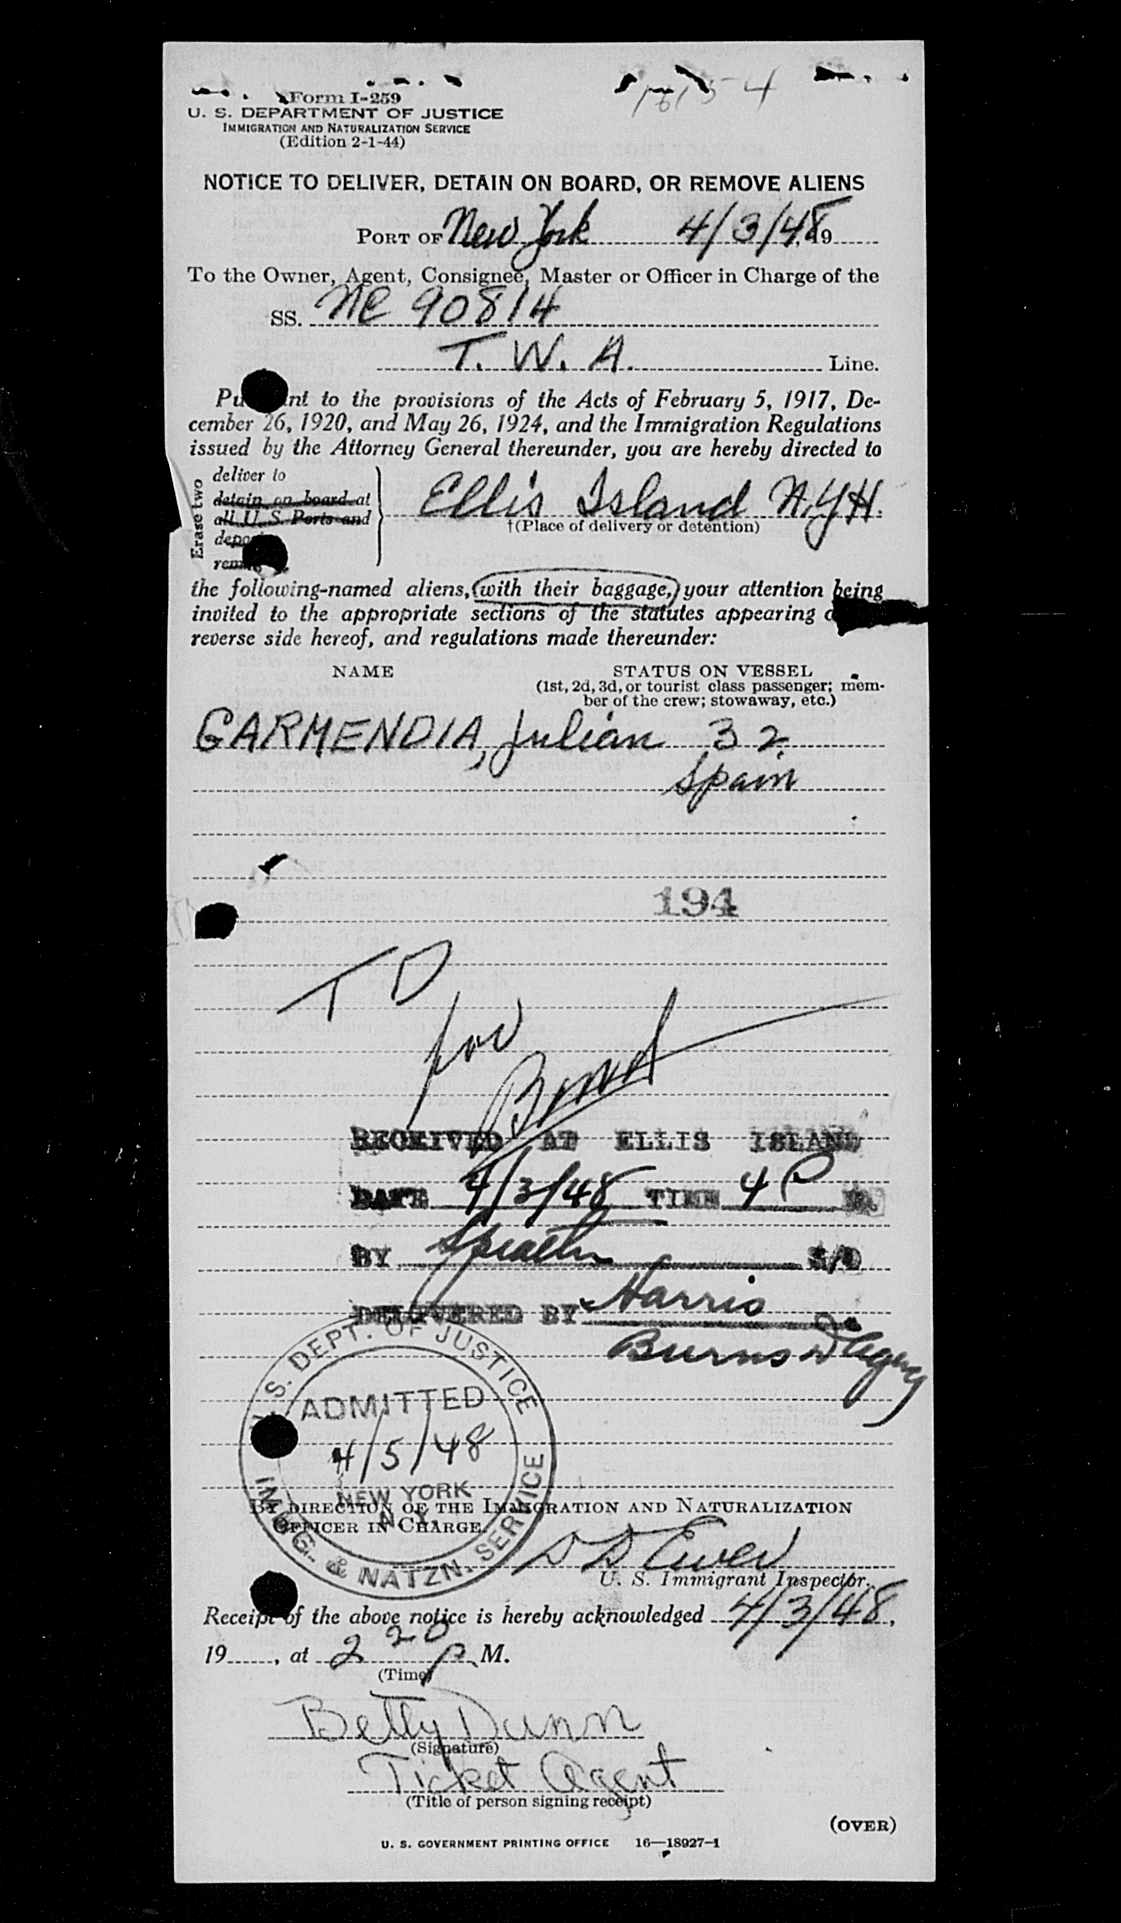 Form I-259
U. S. DEPARTMENT OF JUSTICE
IMMIGRATION AND NATURALIZATION SERVICE
(Edition 2-1-44)
NOTICE TO DELIVER, DETAIN ON BOARD, OR REMOVE ALIENS
PORT OF New York 4/3/48, 19
To the Owner, Agent, Consignee, Master or Officer in Charge of the
SS. NC 90814
T. W. A. Line.
nt to the provisions of the Acts of February 5, 1917, De-
cember 26, 1920, and May 26, 1924, and the Immigration Regulations
issued by the Attorney General thereunder, you are hereby directed to
Erase two
deliver to
detain on board at
all U. S. Ports and
Ellis Island N.Y.H.
†(Place of delivery or detention)
the following-named aliens, (with their baggage,) your attention being
invited to the appropriate sections of the statutes appearing
reverse side hereof, and regulations made thereunder:
NAME STATUS ON VESSEL
(1st, 2d, 3d, or tourist class passenger; mem-
ber of the crew; stowaway, etc.)
GARMENDIA, Julian 32
Spain
194
TD
for
Bond
RECEIVED AT ELLIS ISLAND
DATE 4/3/48 TIME 4 P M.
BY S/O
DELIVERED BY Harris
Burns D Agency
U. S. DEPT. OF JUSTICE
ADMITTED
4/5/48
NEW YORK
N. Y.
IMMIG. & NATZN. SERVICE
BY DIRECTION OF THE IMMIGRATION AND NATURALIZATION
OFFICER IN CHARGE.
U. S. Immigrant Inspector.
Receipt of the above notice is hereby acknowledged 4/3/48,
19, at 2 20 P. M.
(Time)
Betty Dunn
(Signature)
Ticket Agent
(Title of person signing receipt)
(OVER)
U. S. GOVERNMENT PRINTING OFFICE 16—18927-1